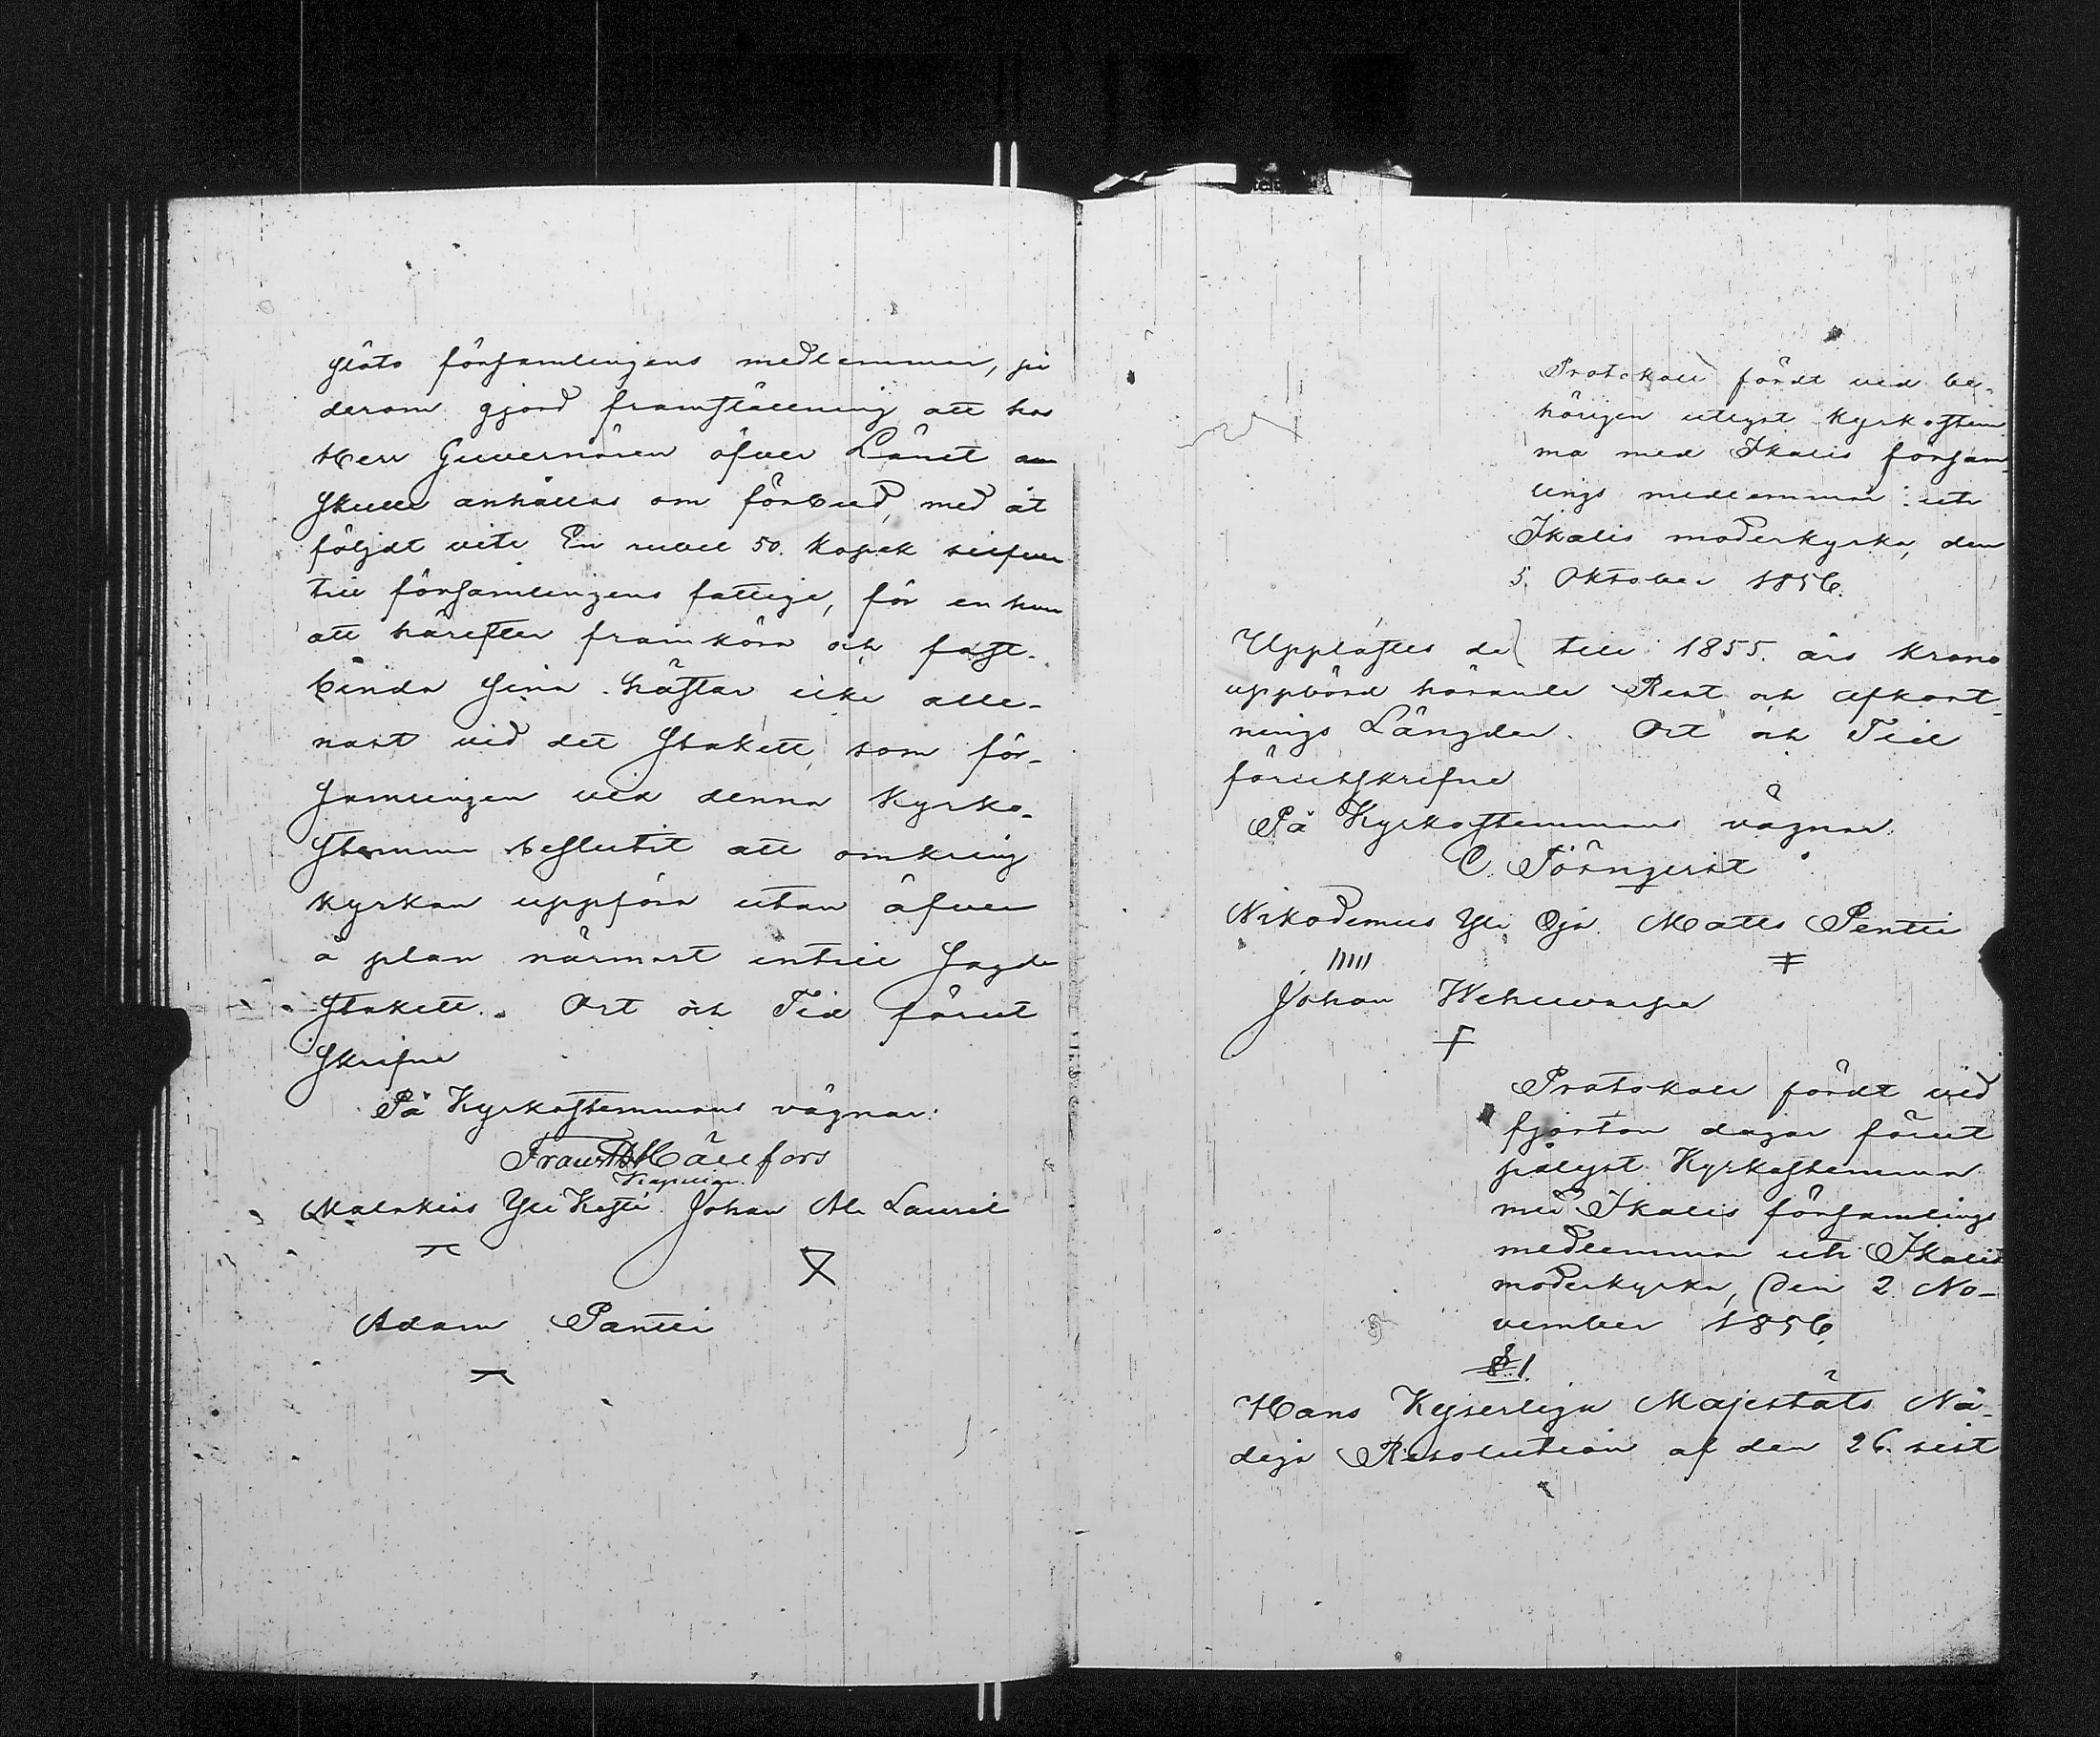 slöts församlingens medlemmar, på
derom gjord framställning att hos
Herr Guvernören öfver Länet
skulle anhållas om förbud, med åt
följdt vite En rubel 50. kopek silfver
till församlingens fattige, för en hvar
att härefter framköra och fast-
binda sina hästar icke alle-
nast vid det staket, som för-
samlingen vid denna Kyrko-
stemma beslutit att omkring
kyrkan uppföra utan äfven
å plan närmast intill sagde
stakett. Ort och Tid förut
skrifne
På Kyrkostemmans vägnar:
Frans Hällfors
Kapellan
Malakias Yli Kesti. Johan Ala Lauril
Adam Pantti
Protokoll fördt vid be-
hörigen utlyst Kyrkostem
ma med Ikalis försam-
lings medlemmar uti
Ikalis moderkyrka, den
5. Oktober 1856.
Upplästes de till 1855. års Krono
uppbörd hörande Rest och Afkort-
nings Längder. Ort och Tid
förutskrifne
På Kyrkostemmans vägnar.
C. Törnqvist
Nikodemus Yli Oja. Matts Pentti
Johan Wehuvarpe
Protokoll fördt vid
fjorton dagar förut
pålyst Kyrkostemma
med Ikalis församlings
medlemmar uti Ikalis
moderkyrka, Den 2 No-
vember 1856.
§.1.
Hans Kejserliga Majestäts Nå-
diga Resolution af den 26. sist